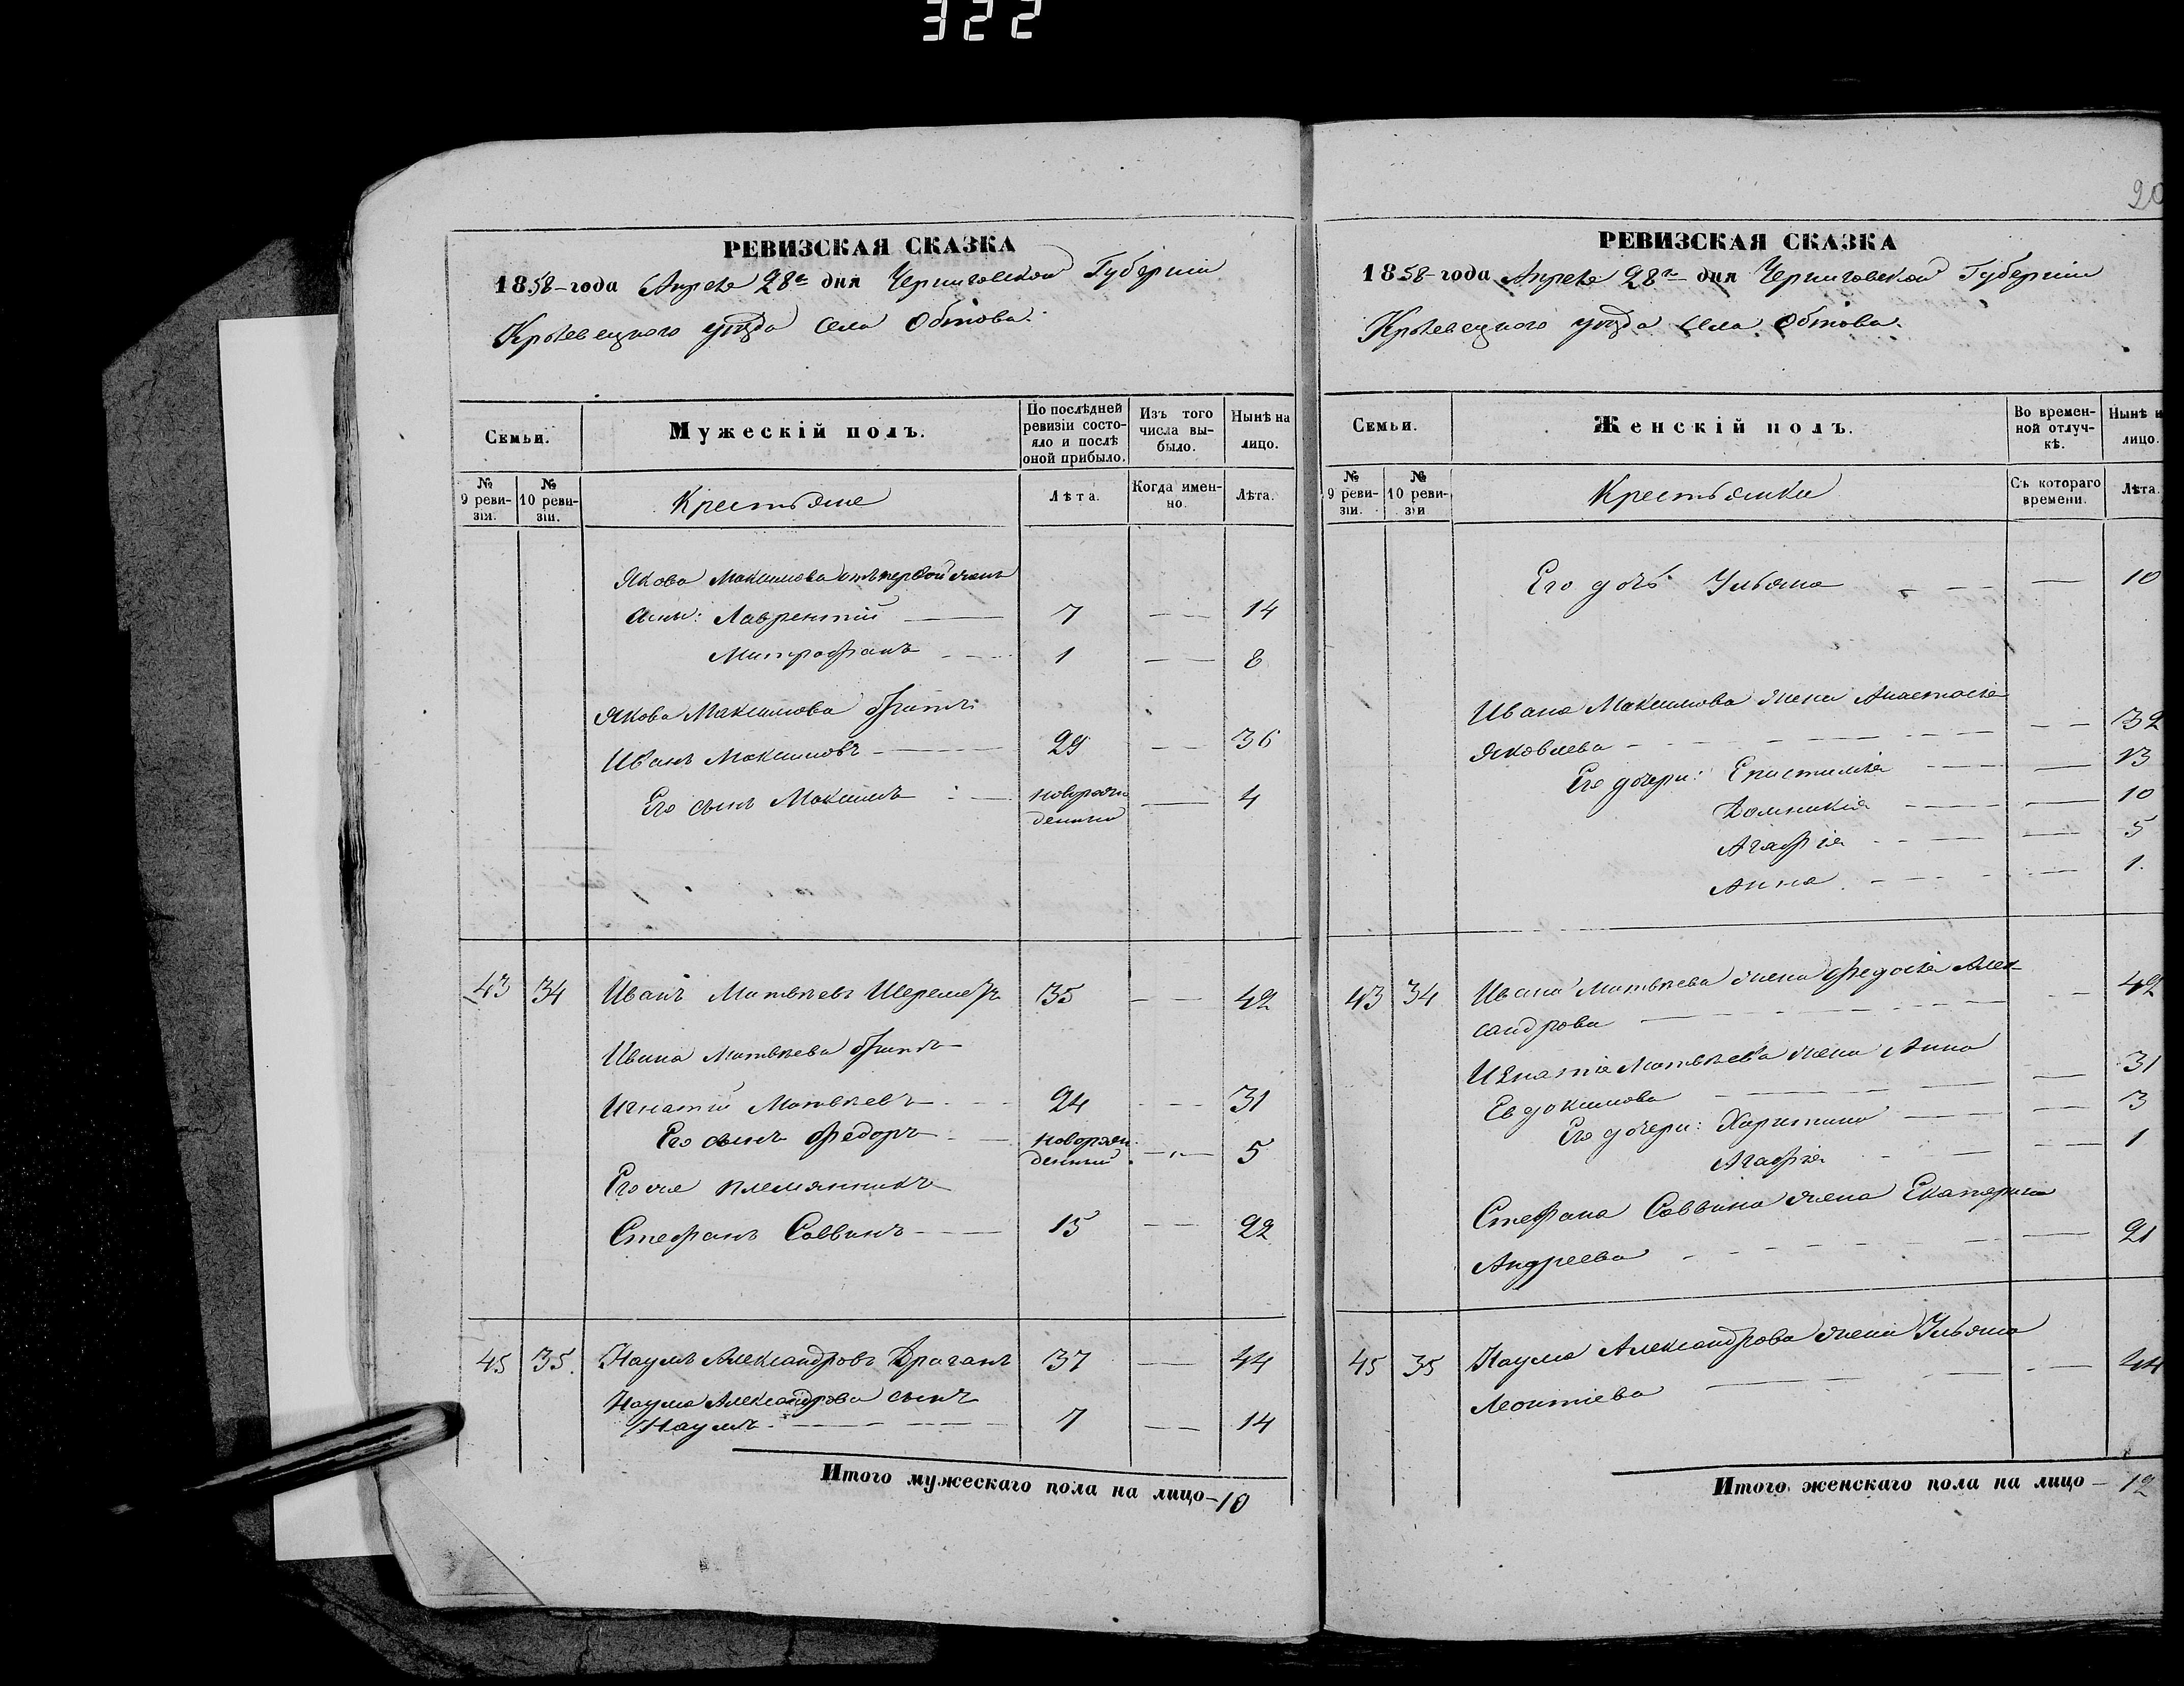 322
РЕВИЗСКАЯ СКАЗКА
1858 года Апреля 28го дня Черниговской Губернiи
Кролевецкого уѣзда села Обтова.
Семьи.
Мужескiй полъ.
По послѣдней ревизiи состояло и послѣ оной прибыло.
Изъ того числа выбыло.
Нынѣ на лицо.
№ 9 ревизiи.
№ 10 ревизiи.
Крестьяне
Лѣта.
Когда именно.
Лѣта.
Якова Максимова отъ первой жены
сыны: Лаврентiй — 7 — 14
Митрофанъ — 1 — 8
Якова Максимова братъ
Иванъ Максимовъ — 29 — 36
Его сынъ Максимъ — новорожденный — 4
43 34 Иванъ Матвѣевъ Шереметъ 35 — 42
Ивана Матвѣева братъ
Игнатiй Матвѣевъ — 24 — 31
Его сынъ Федоръ — новорожденный — 5
Его же племянникъ
Стефанъ Саввинъ — 15 — 22
45 35. Наумъ Александровъ Драганъ 37 — 44
Наума Александрова сынъ
Наумъ — 7 — 14
Итого мужескаго пола на лицо — 10
20
РЕВИЗСКАЯ СКАЗКА
1858 года Апреля 28го дня Черниговской Губернiи
Кролевецкого уѣзда села Обтова.
Семьи.
Женскiй полъ.
Во временной отлучкѣ.
Нынѣ н лицо.
№ 9 ревизiи.
№ 10 ревизiи
Крестьянки
Съ котораго времени.
Лѣта.
Его дочь Ульяна — 10
Ивана Максимова жена Анастасiя
Яковлева — 32
Его дочери: Епистимiя — 13
Домникiя — 10
Агафiя — 5
Анна — 1.
43 34 Ивана Матвѣева жена Федосiя Алек-
сандрова — 42
Игнатiя Матвѣева жена Анна
Евдокимова — 31
Его дочери: Харитина — 3
Агафiя — 1
Стефана Саввина жена Екатерина
Андреева — 21
45 35 Наума Александрова жена Ульяна
Леонтiева — 44
Итого женскаго пола на лицо — 12